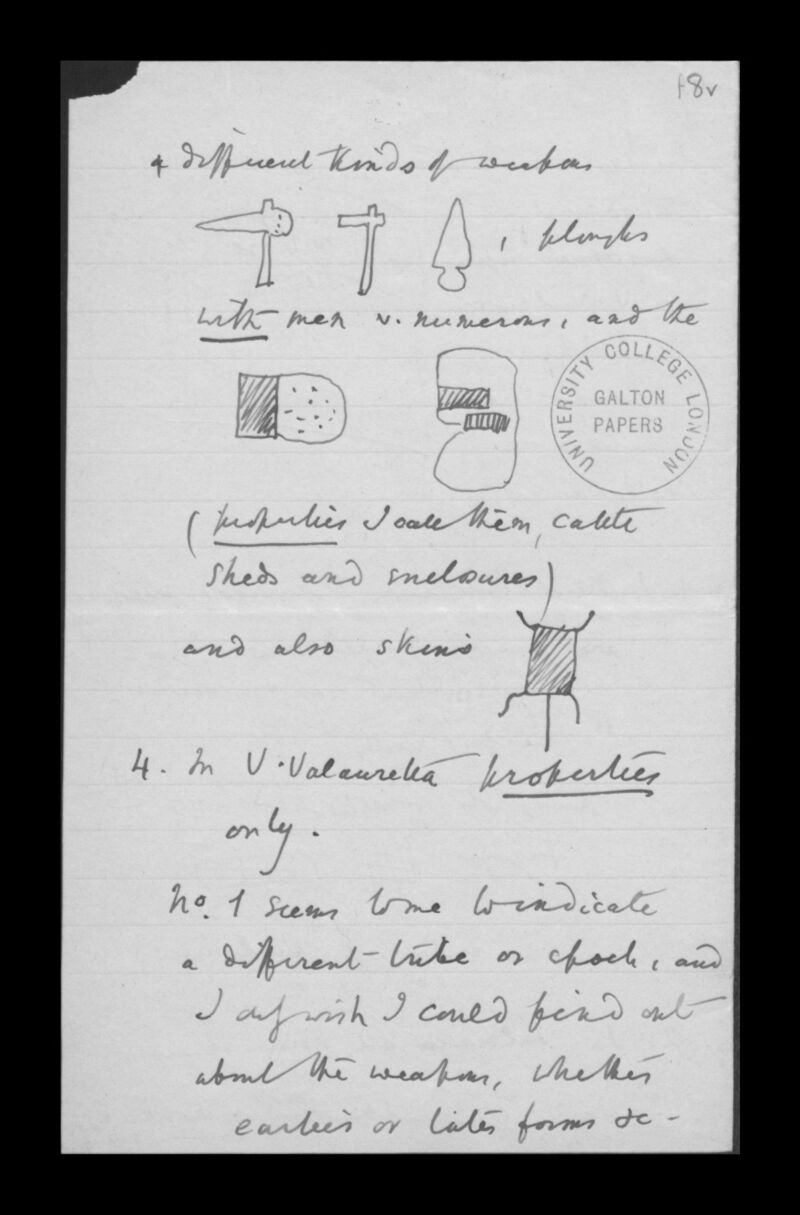 18v
& different kinds of weapons
, ploughs
with men v. numerous, and the
UNIVERSITY COLLEGE LONDON
GALTON
PAPERS
(properties I call them, cattle
sheds and enclosures)
and also skins
4. In V. Valauretta properties
only.
No. 1 seems to me to indicate
a different tribe or epoch, and
I do wish I could find out
about the weapons, whether
earlier or later forms &c -